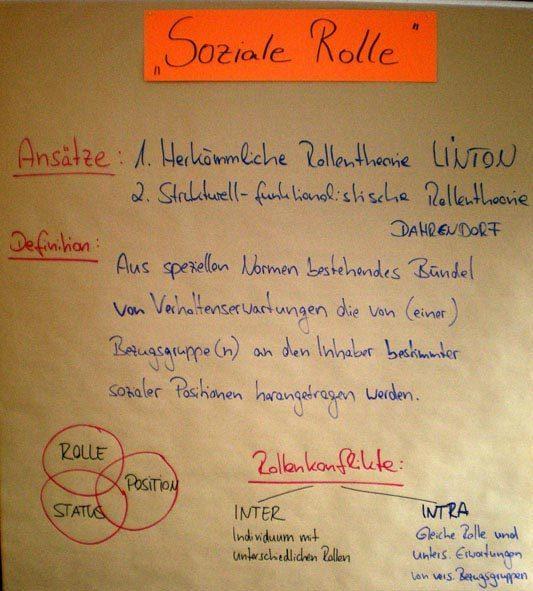 „Soziale Rolle"
Ansätze: 1. Herkömmliche Rollentheorie LINTON
2. Strukturell-funktionalistische Rollentheorie
DAHRENDORF
Definition:
Aus speziellen Normen bestehendes Bündel
von Verhaltenserwartungen die von (einer)
Bezugsgruppe(n) an den Inhaber bestimmter
sozialer Positionen herangetragen werden.
ROLLE
POSITION
STATUS
Rollenkonflikte:
INTER
Individuum mit
unterschiedlichen Rollen
INTRA
Gleiche Rolle und
unters. Erwartungen
von vers. Bezugsgruppen